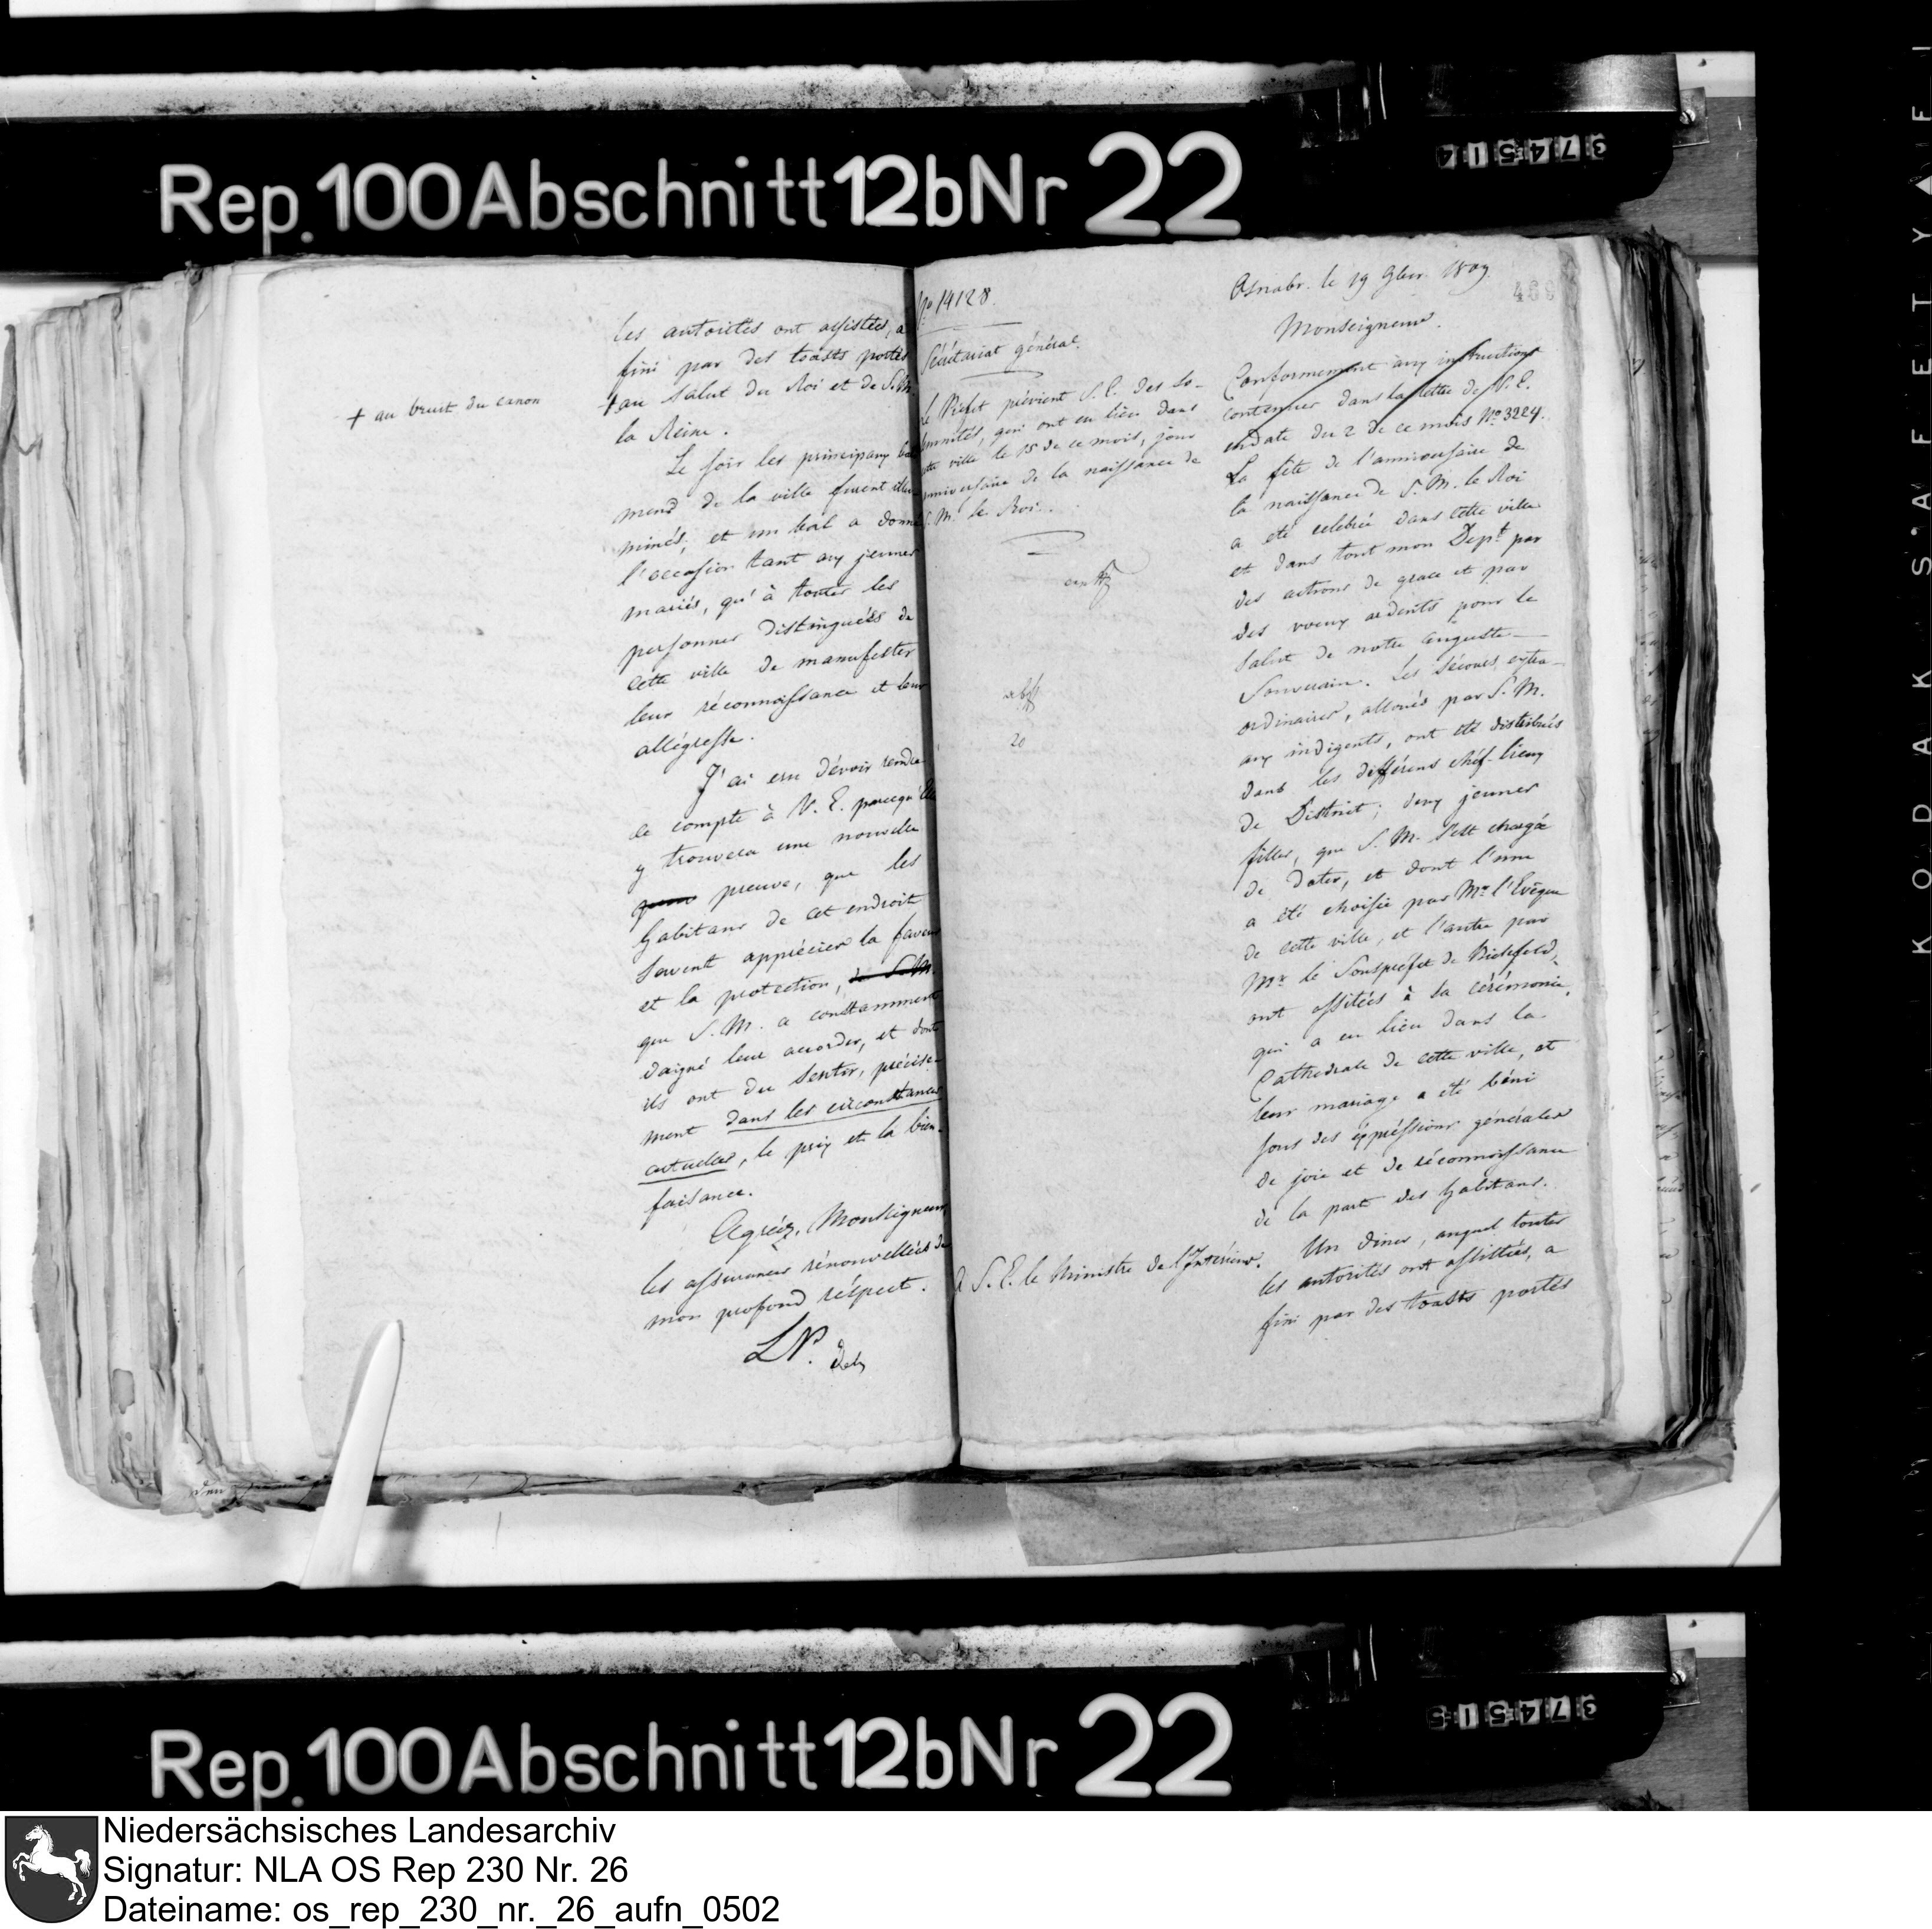 Rep. 100 Abschnitt 12b Nr 22
374514
les autorités ont assistées, a
fini par des toasts portés
+ au salut du Roi et de S. M.
la Reine.
+ au bruit du canon
Le soir les principaux
mens de la ville furent illu-
minés; et un bal a donné
l'occasion tant aux jeunes
mariés, qu'à toutes les
personnes distinguées de
cette ville de manifester
leur réconnoissance et leur
allégresse.
J'ai cru dévoir rendre
ce compte à V. E. parcequ'Elle
y trouvera une nouvelle
preuve, que les
habitans de cet endroit
savent apprécier la faveur
et la protection, de S. M.
que S. M. a constamment
daigné leur accorder, et dont
ils ont du sentir, précisé-
ment dans les circonstances
actuelles, le prix et la bien-
faisance.
Agréez, Monseigneur
les assurances rénouvellées de
mon profond réspect.
L P.
No 14128.
Sécrétariat général.
Le Préfet prévient S. E. des so-
lemnités, qui ont eu lieu dans
cette ville le 15 de ce mois, jour
anniversaire de la naissance de
S. M. le Roi.
20
à S. E. le Ministre de l'Intérieur.
Osnabr. le 19 9br. 1809.
466
Monseigneur.
Conformement aux instructions
contenues dans la lettre de V. E.
en date du 2 de ce mois No 3224.
La fête de l'anniversaire de
la naissance de S. M. le Roi
a été celebrée dans cette ville
et dans tout mon Dept par
des actions de grace et par
des voeux ardents pour le
salut de notre auguste
Souverain. Les sécours extra-
ordinaires, alloués par S. M.
aux indigents, ont été distribués
dans les différens chéf-lieux
de District; deux jeunes
filles, que S. M. s'est chargée
de doter, et dont l'une
a été choisie par Mr l'Evêque
de cette ville, et l'autre par
Mr le Sousprefet de Bielefeld,
ont assitées à la cérémonie,
qui a eu lieu dans la
Cathedrale de cette ville, et
leur mariage a été béni
sous des éxpréssions générales
de joie et de réconnoissance
de la part des habitans.
Un diner, auquel toutes
les autorités ont assistées, a
fini par des toasts portés
KODAK SAFETY
Rep. 100 Abschnitt 12b Nr 22
374515
Niedersächsisches Landesarchiv
Signatur: NLA OS Rep 230 Nr. 26
Dateiname: os_rep_230_nr._26_aufn_0502